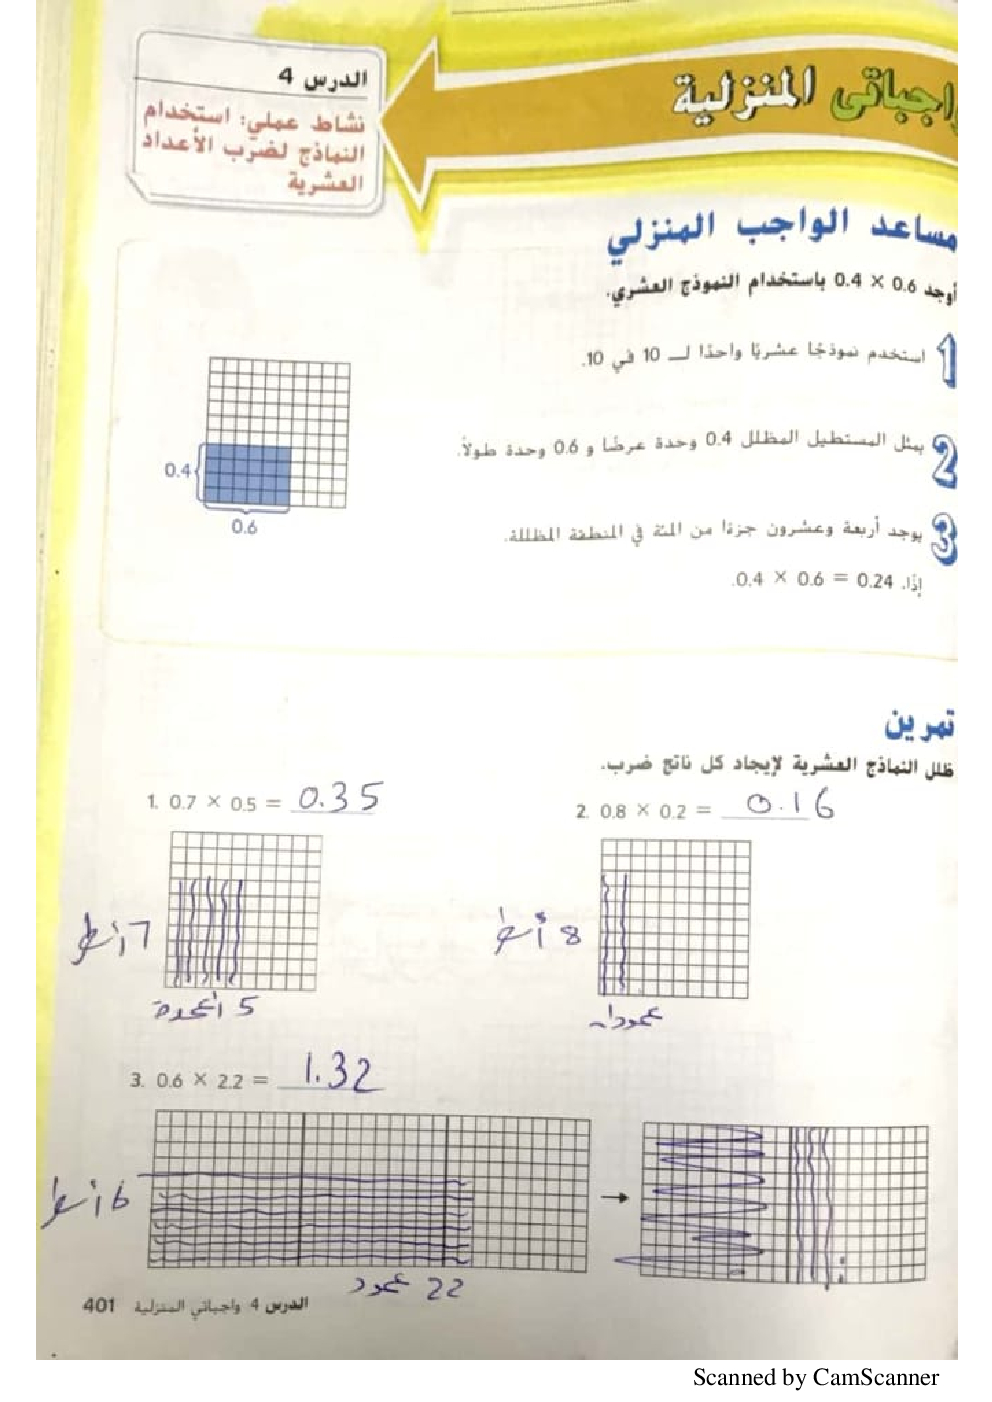 واجباتي المنزلية
الدرس 4
نشاط عملي: استخدام
النماذج لضرب الأعداد
العشرية
مساعد الواجب المنزلي
أوجد 0.6 × 0.4 باستخدام النموذج العشري.
1 استخدم نموذجًا عشريًا واحدًا لـ 10 في 10.
2 يمثل المستطيل المظلل 0.4 وحدة عرضًا و 0.6 وحدة طولاً.
0.4
0.6
3 يوجد أربعة وعشرون جزءًا من المئة في المنطقة المظللة.
إذًا، 0.4 × 0.6 = 0.24.
تمرين
ظلل النماذج العشرية لإيجاد كل ناتج ضرب.
1. 0.7 × 0.5 = 0.35
2. 0.8 × 0.2 = 0.16
7
8
5 أعمدة
عمودان
3. 0.6 × 2.2 = 1.32
6
22 عمود
الدرس 4 واجباتي المنزلية 401
Scanned by CamScanner